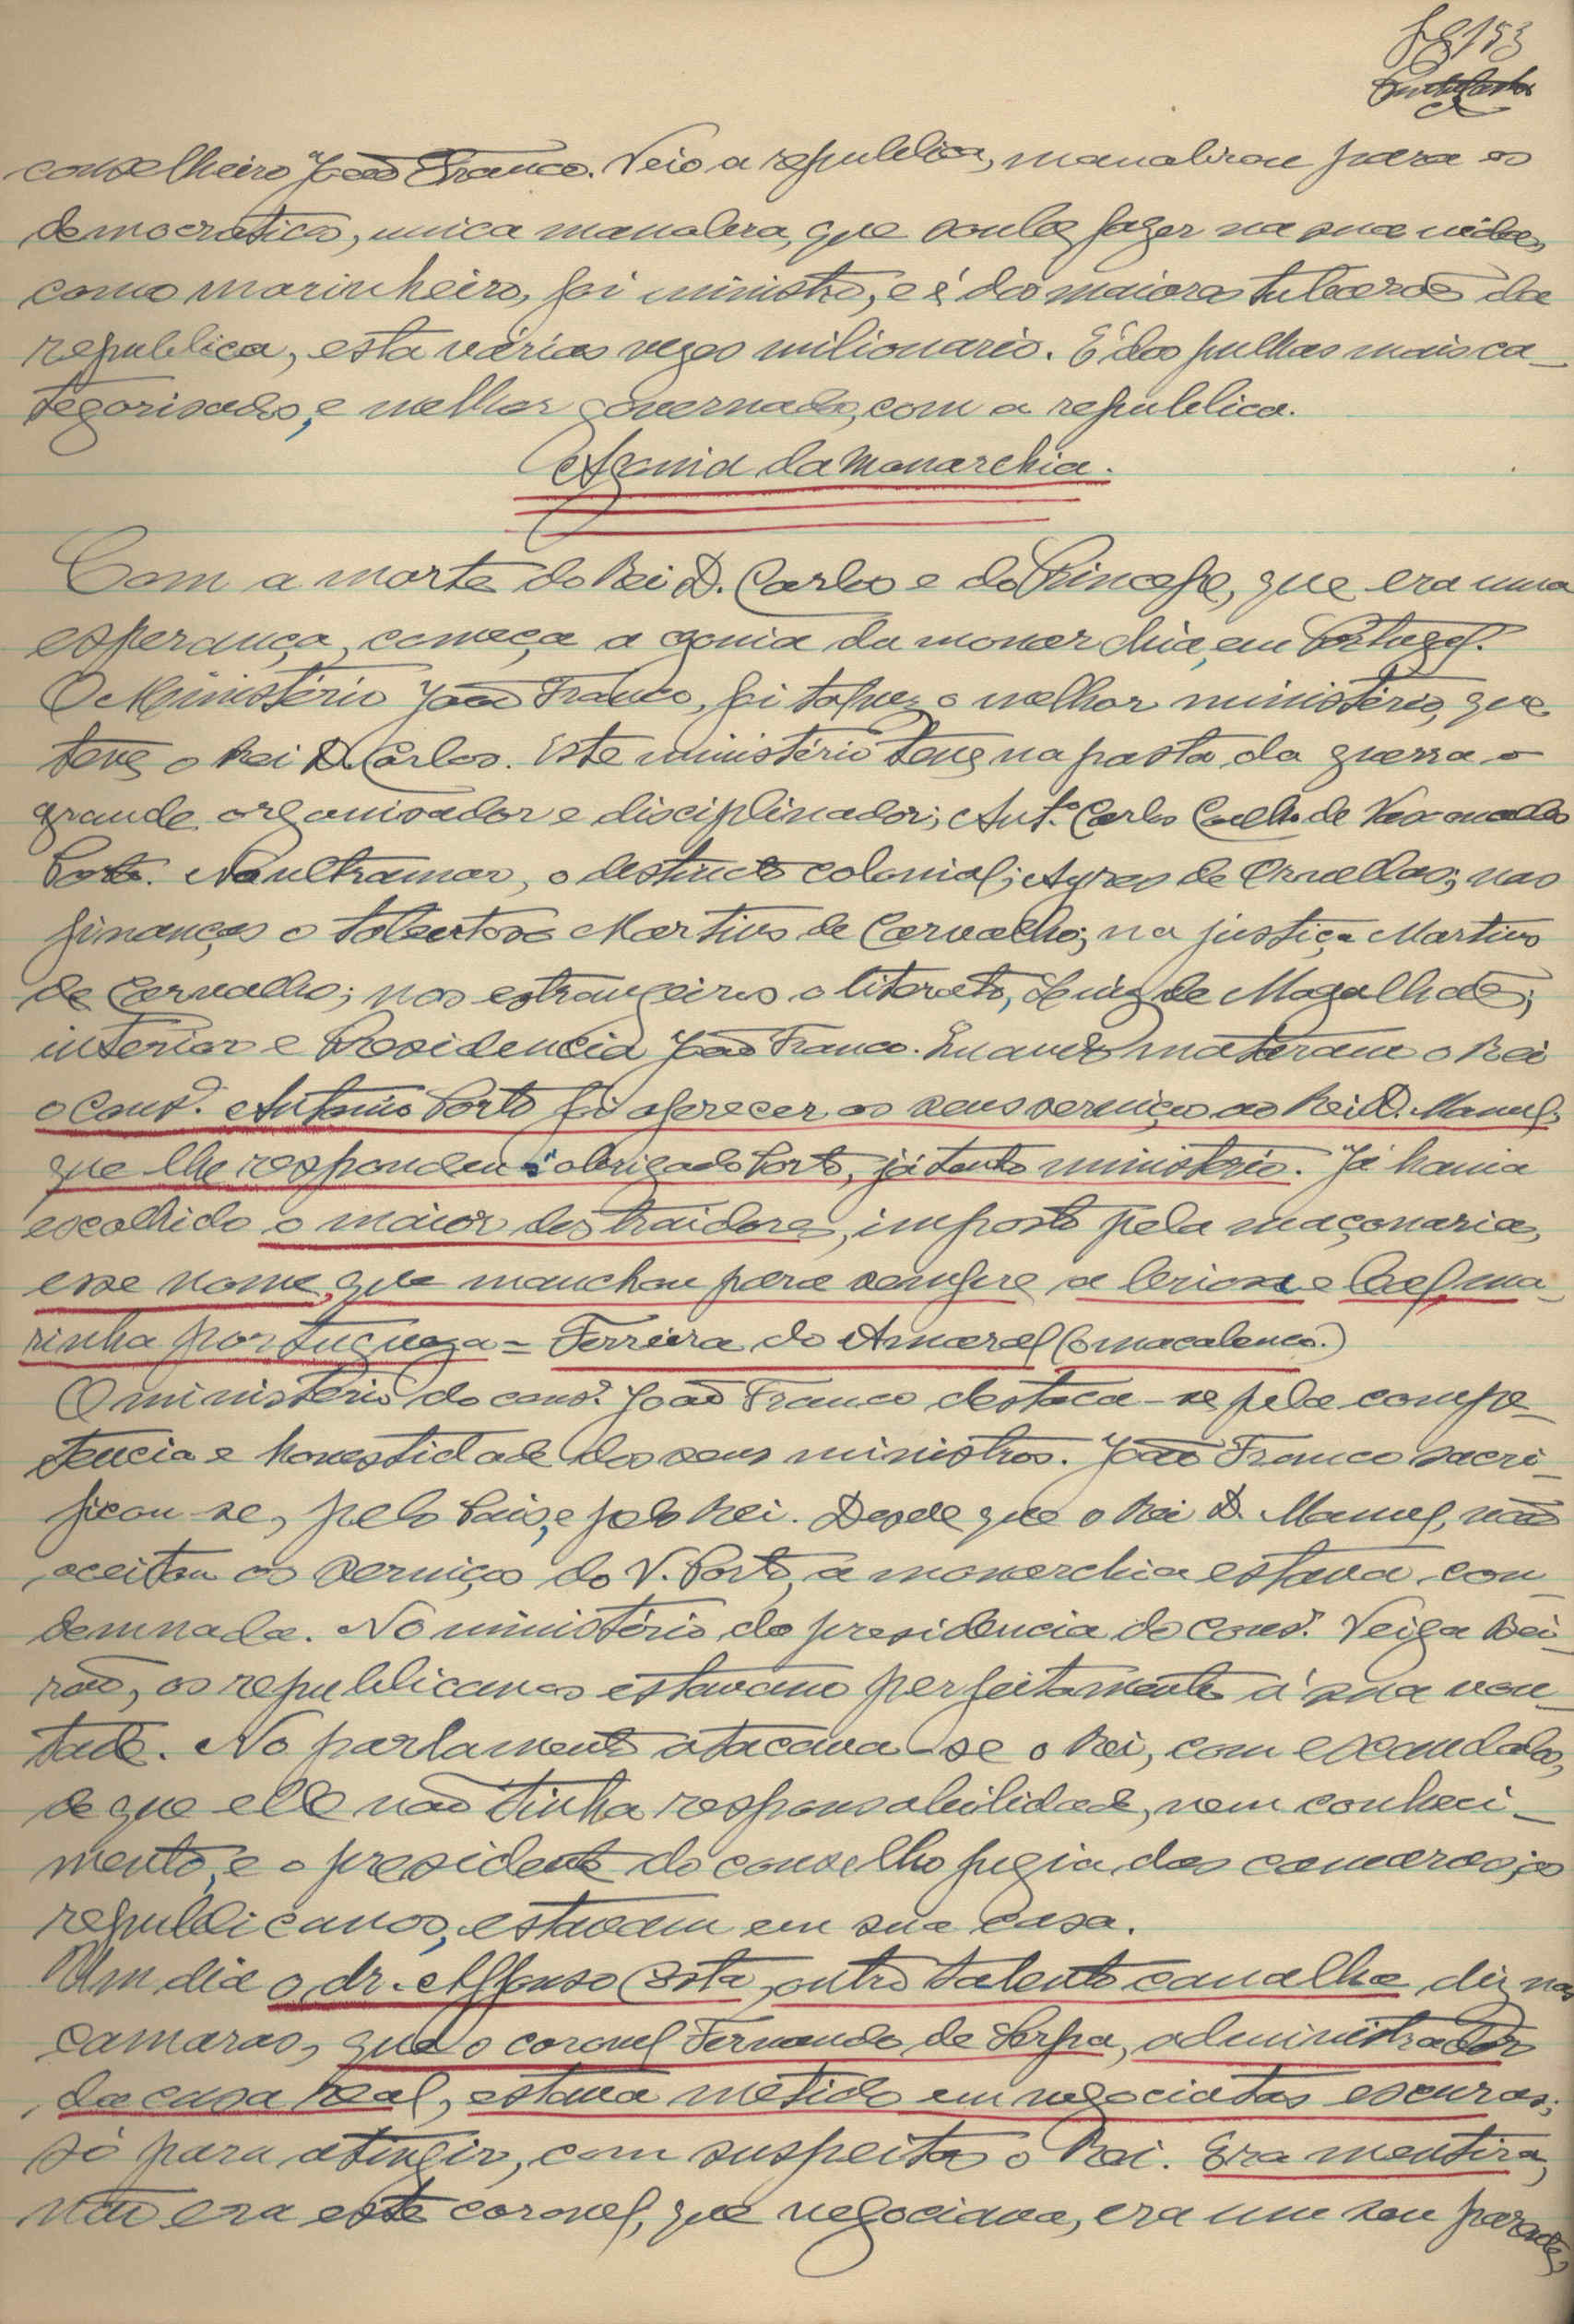 fg 153
conselheiro João Franco. Veio a republica, manobrou para os
democraticos, unica manobra, que soube fazer na sua vida,
como marinheiro, foi ministro, e é dos maiores tubarões da
republica, esta várias vezes milionario. É dos pulhas mais ca-
tegorisados, e melhor governado, com a republica.
Agonia da Monarchia.
Com a morte do Rei D. Carlos e do Principe, que era uma
esperança, começa a agonia da monarchia, em Portugal.
O Ministério João Franco, foi talvez o melhor ministério, que
teve o Rei D. Carlos. Este ministério teve na pasta da guerra o
grande organisador e disciplinador; Antº. Carlos Coelho de Vasconcellos
Porto. No ultramar, o destincto colonial; Ayres de Ornellas; nas
finanças o talentoso Martins de Carvalho; na justiça Martins
de Carvalho; nos estrangeiros o literato, Luiz de Magalhães;
interior e Presidencia João Franco. Quando mataram o Rei
o Consº. Antonio Porto foi oferecer os seus serviços ao Rei D. Manuel,
que lhe respondeu: obrigado Porto, já tenho ministério. Já havia
escolhido o maior dos traidores, imposto pela maçonaria,
esse nome, que manchou para sempre a briosa e leal ma-
rinha portugueza = Ferreira do Amaral (o macalenco.)
O ministério do consº. João Franco destaca-se pela compe-
tencia e honestidade dos seus ministros. João Franco sacri-
ficou-se, pelo Pais, e pelo Rei. Desde que o Rei D. Manuel, não
aceitou os serviços do V. Porto, a monarchia estava con-
demnada. No ministério da presidencia do consº. Veiga Bei-
rão, os republicanos estavam perfeitamente á sua von-
tade. No parlamento atacava-se o Rei, com escandalos,
de que elle não tinha responsabilidade, nem conheci-
mento, e o presidente do conselho fugia das camaras; os
republicanos, estavam em sua casa.
Um dia o dr. Affonso Costa, outro talento canalha, diz nas
camaras, que o coronel Fernando de Serpa, administrador
da casa real, estava metido em negociatas escuras;
só para atingir, com suspeitas o Rei. Era mentira,
não era este coronel, que negociava, era um seu parente,